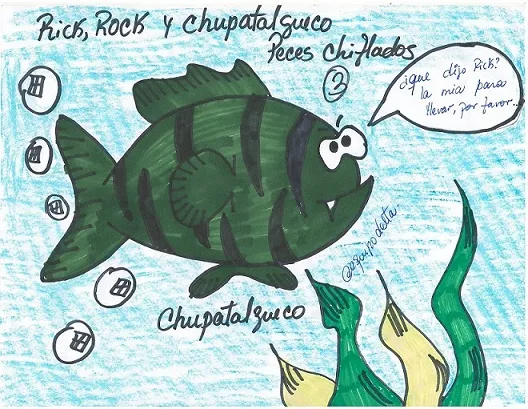 Rick, Rock y Chupatalgueco
Peces Chiflados
3
¿que dijo Rick?
la mia para
llevar, por favor...
Chupatalgueco